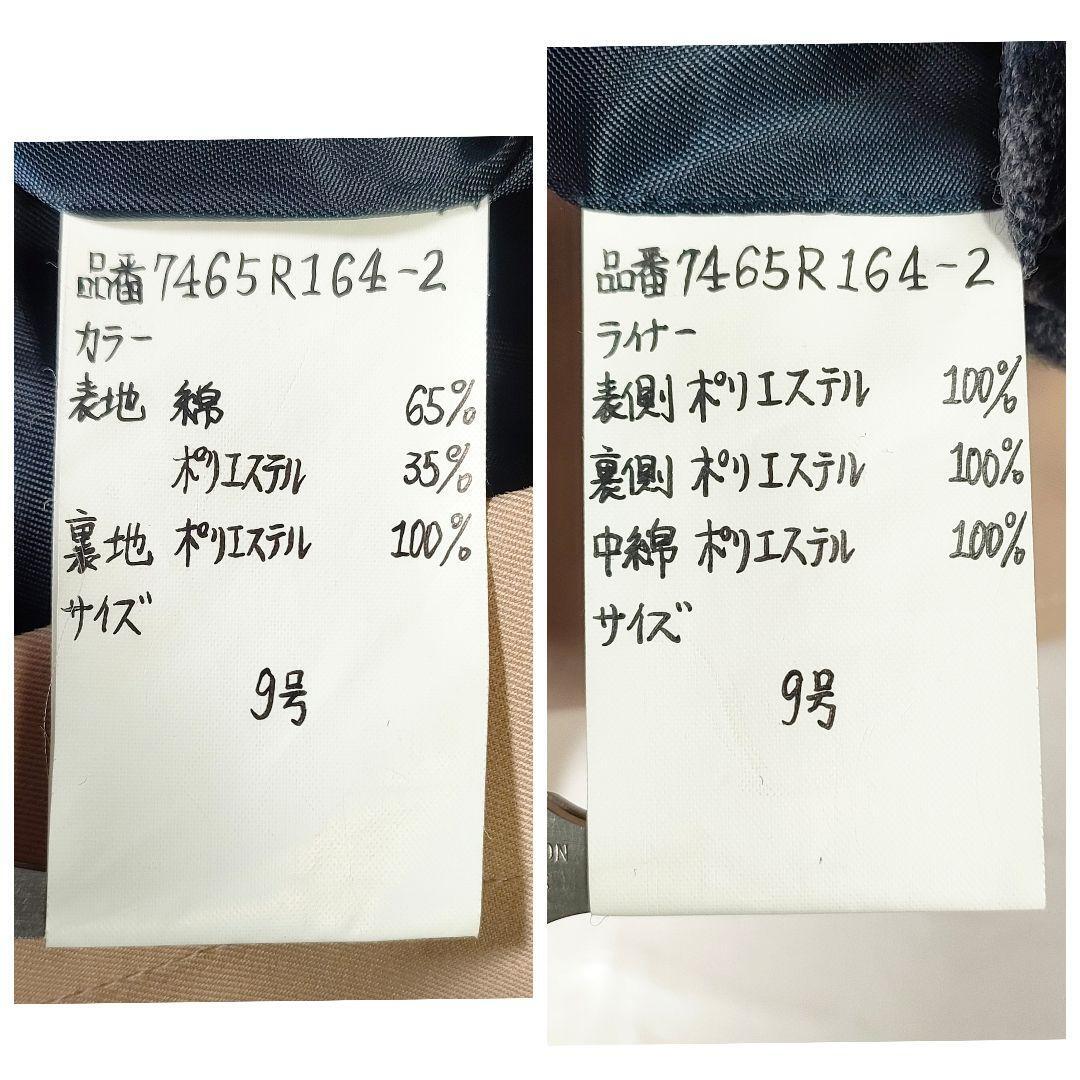 品番7465R164-2
カラー
表地 綿 65%
ポリエステル 35%
裏地 ポリエステル 100%
サイズ
9号
品番7465R164-2
ライナー
表側 ポリエステル 100%
裏側 ポリエステル 100%
中綿 ポリエステル 100%
サイズ
9号
ON